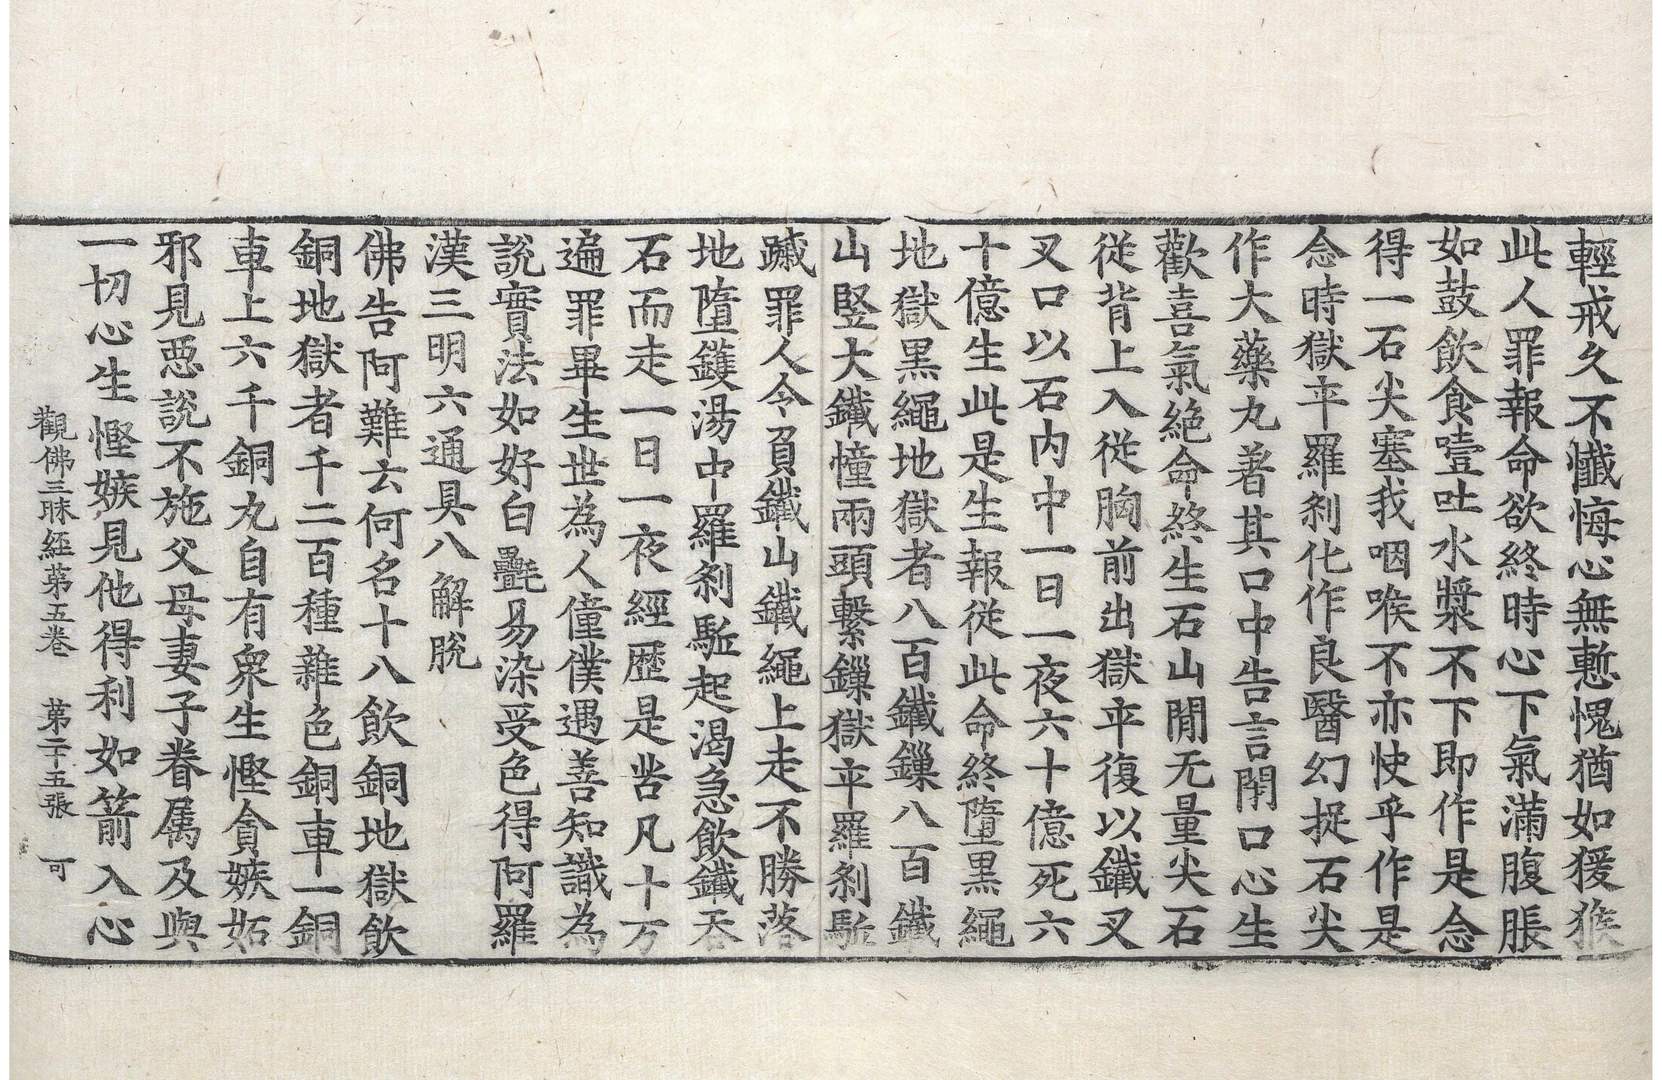 輕戒久不懺悔心無慙愧猶如猨猴
此人罪報命欲終時心下氣滿腹脹
如鼓飲食噎吐水漿不下即作是念
得一石尖塞我咽喉不亦快乎作是
念時獄卒羅刹化作良醫幻捉石尖
作大藥丸著其口中告言閇口心生
歡喜氣絶命終生石山間无量尖石
從背上入從胸前出獄卒復以鐵叉
叉口以石内中一日一夜六十億死六
十億生此是生報從此命終墮黒繩
地獄黒繩地獄者八百鐵鏁八百鐵
山竪大鐵幢兩頭繫鏁獄卒羅刹駈
蹴罪人令負鐵山鐵繩上走不勝落
地墮鑊湯中羅刹駈起渴急飲鐵吞
石而走一日一夜經歴是苦凡十万
遍罪畢生世為人僮僕遇善知識為
說實法如好白㲲易染受色得阿羅
漢三明六通具八解脫
佛告阿難云何名十八飲銅地獄飲
銅地獄者千二百種雜色銅車一銅
車上六千銅丸自有衆生慳貪嫉妬
邪見惡說不施父母妻子眷属及與
一切心生慳嫉見他得利如箭入心
觀佛三昧經第五卷 第二十五張 可